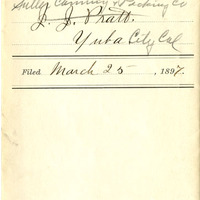 Sutter Canning & Packing Co
J. J. Pratt.
Yuba City Cal
Filed March 25, 1897.